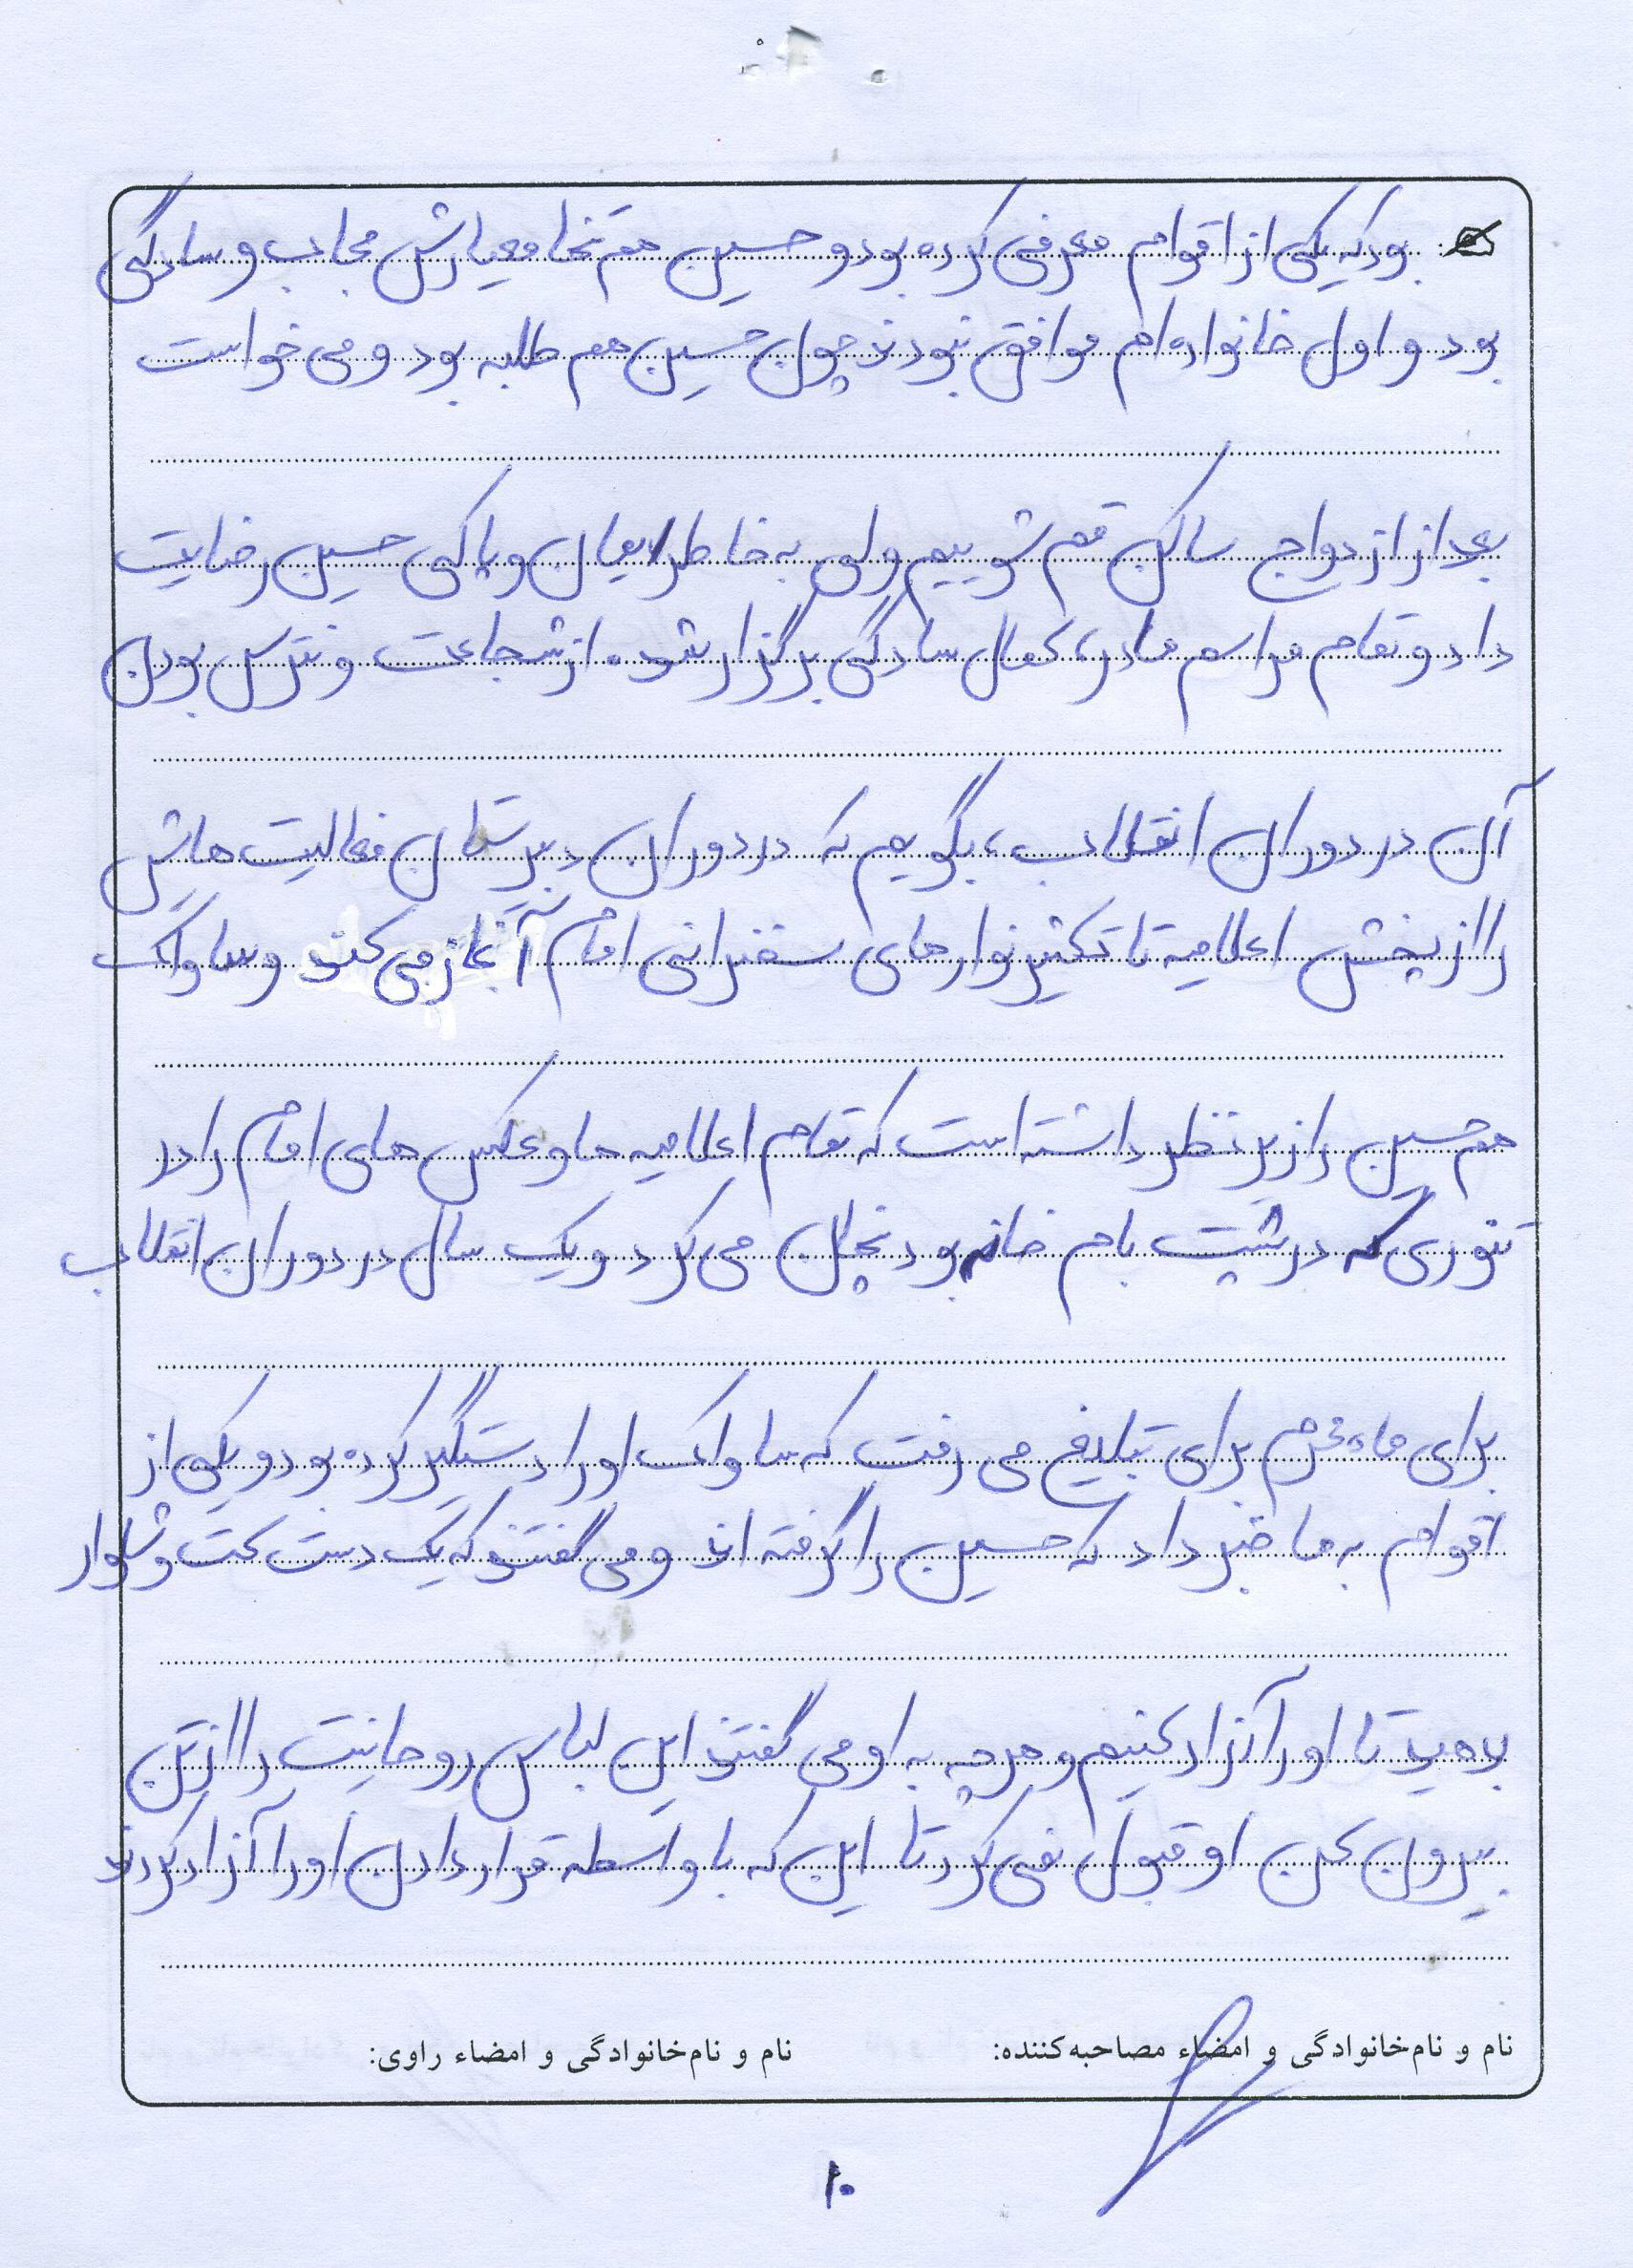 بود که یکی از اقوام معرفی کرده بود و حسین هم تنها معیارش حجاب و سادگی
بود و اول خانواده ام موافق نبودند چون حسین هم طلبه بود و می خواست
بعد از ازدواج ساکن قم شوییم ولی به خاطر ایمان و پاکی حسین رضایت
داد و تمام مراسم ما در کمال سادگی برگزار شد. از شجاعت و نترس بودن
آن در دوران انقلاب، بگویم که در دوران دبیرستان فعالیت هایش
را از پخش اعلامیه تا تکثیر نوارهای سخنرانی امام آغاز می کند و ساواک
هم حسین را زیر نظر داشته است که تمام اعلامیه ها و عکس های امام را در
تنوری که در پشت بام خانه بود پنهان می کرد و یک سال در دوران انقلاب
برای ماه محرم برای تبلیغ می رفت که ساواک او را دستگیر کرده بود و یکی از
اقوام به ما خبر داد که حسین را گرفته اند و می گفتند که یک دست کت و شلوار
بدهید تا او را آزاد کنیم و هر چه به او می گفتند این لباس روحانیت را از تن
بیرون کن او قبول نمی کرد تا این که با واسطه قرار دادن او را آزاد کردند
نام و نام‌خانوادگی و امضاء مصاحبه‌کننده:
نام و نام‌خانوادگی و امضاء راوی:
۱۰